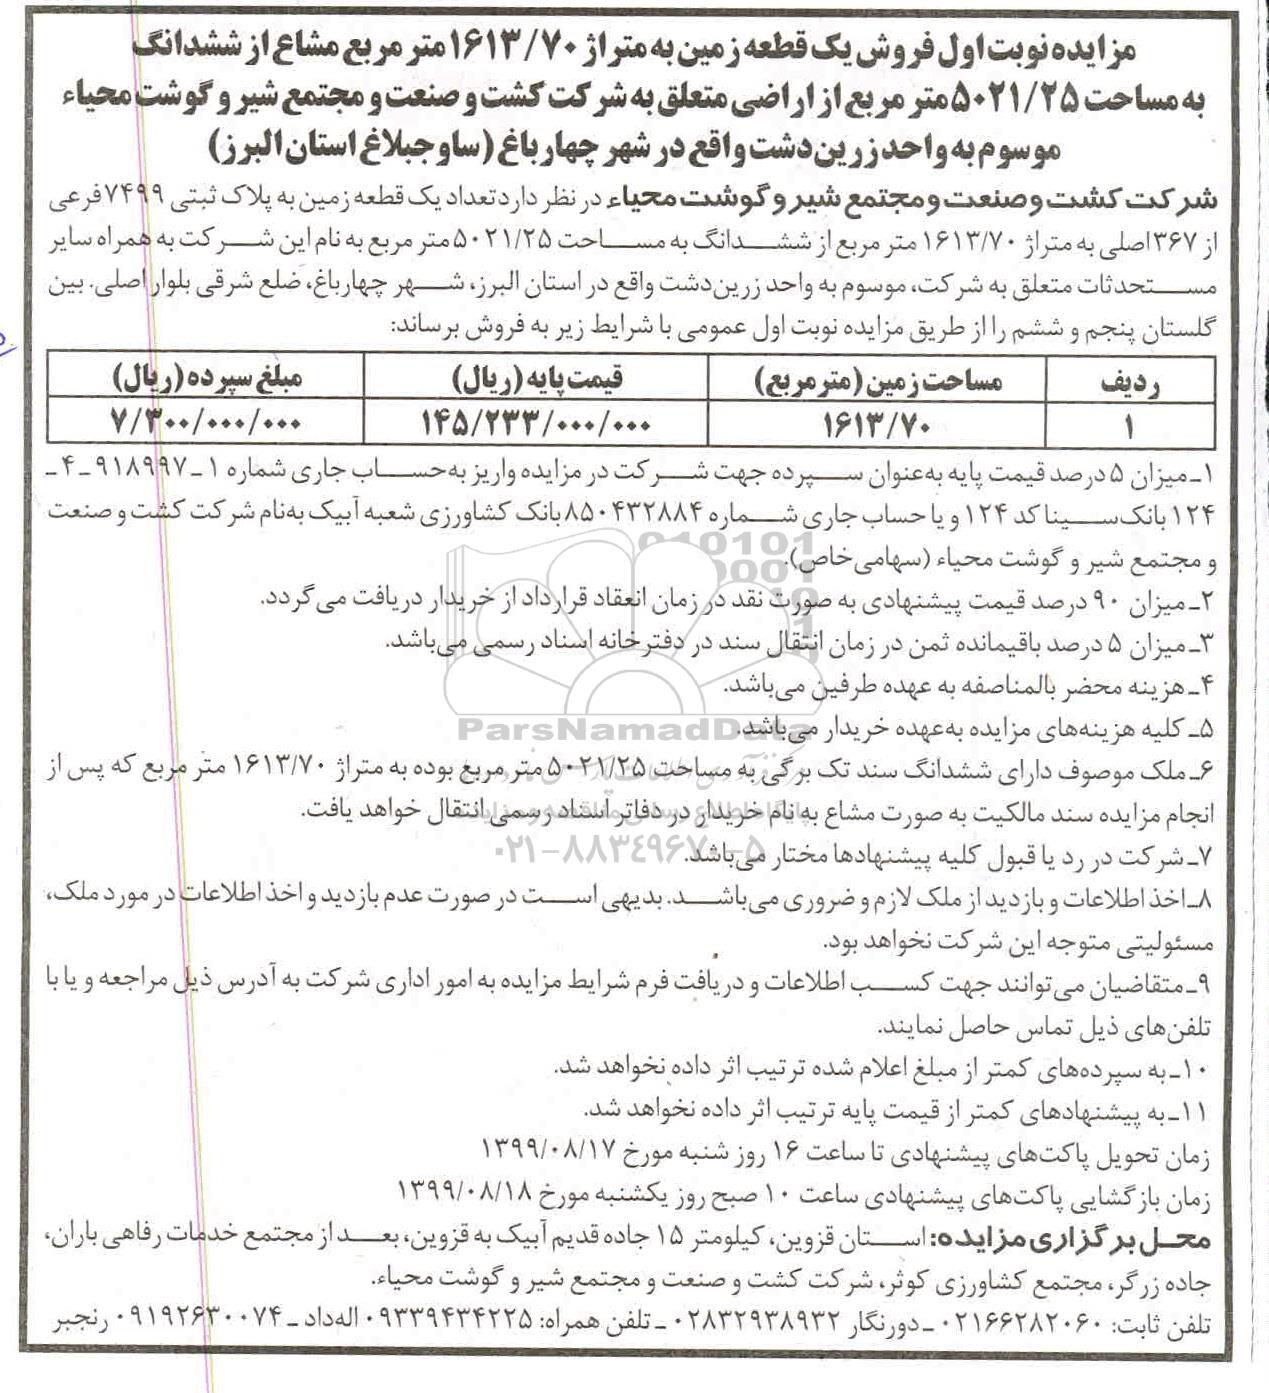 مزایده نوبت اول فروش یک قطعه زمین به متراژ ۱۶۱۳/۷۰ متر مربع مشاع از ششدانگ
به مساحت ۵۰۲۱/۲۵ متر مربع از اراضی متعلق به شرکت کشت و صنعت و مجتمع شیر و گوشت محیاء
موسوم به واحد زرین‌دشت واقع در شهر چهارباغ (ساوجبلاغ استان البرز)
شرکت کشت و صنعت و مجتمع شیر و گوشت محیاء در نظر دارد تعداد یک قطعه زمین به پلاک ثبتی ۷۴۹۹ فرعی
از ۳۶۷ اصلی به متراژ ۱۶۱۳/۷۰ متر مربع از ششدانگ به مساحت ۵۰۲۱/۲۵ متر مربع به نام این شرکت به همراه سایر
مستحدثات متعلق به شرکت، موسوم به واحد زرین‌دشت واقع در استان البرز، شهر چهارباغ، ضلع شرقی بلوار اصلی. بین
گلستان پنجم و ششم را از طریق مزایده نوبت اول عمومی با شرایط زیر به فروش برساند:
ردیف مساحت زمین (متر مربع) قیمت پایه (ریال) مبلغ سپرده (ریال)
۱ ۱۶۱۳/۷۰ ۱۴۵/۲۳۳/۰۰۰/۰۰۰ ۷/۳۰۰/۰۰۰/۰۰۰
۱ـ میزان ۵ درصد قیمت پایه به‌عنوان سپرده جهت شرکت در مزایده واریز به‌حساب جاری شماره ۱ـ۹۱۸۹۹۷ـ۴ـ
۱۲۴ بانک سینا کد ۱۲۴ و یا حساب جاری شماره ۸۵۰۴۳۲۸۸۴ بانک کشاورزی شعبه آبیک به‌نام شرکت کشت و صنعت
و مجتمع شیر و گوشت محیاء (سهامی‌خاص).
۲ـ میزان ۹۰ درصد قیمت پیشنهادی به صورت نقد در زمان انعقاد قرارداد از خریدار دریافت می‌گردد.
۳ـ میزان ۵ درصد باقیمانده ثمن در زمان انتقال سند در دفترخانه اسناد رسمی می‌باشد.
۴ـ هزینه محضر بالمناصفه به عهده طرفین می‌باشد.
ParsNamadData
۵ـ کلیه هزینه‌های مزایده به‌عهده خریدار می‌باشد.
۶ـ ملک موصوف دارای ششدانگ سند تک برگی به مساحت ۵۰۲۱/۲۵ متر مربع بوده به متراژ ۱۶۱۳/۷۰ متر مربع که پس از
انجام مزایده سند مالکیت به صورت مشاع به نام خریدار در دفاتر اسناد رسمی انتقال خواهد یافت.
۰۲۱-۸۸۳۴۹۶۷۰-۵
۷ـ شرکت در رد یا قبول کلیه پیشنهادها مختار می‌باشد.
۸ـ اخذ اطلاعات و بازدید از ملک لازم و ضروری می‌باشد. بدیهی است در صورت عدم بازدید و اخذ اطلاعات در مورد ملک،
مسئولیتی متوجه این شرکت نخواهد بود.
۹ـ متقاضیان می‌توانند جهت کسب اطلاعات و دریافت فرم شرایط مزایده به امور اداری شرکت به آدرس ذیل مراجعه و یا با
تلفن‌های ذیل تماس حاصل نمایند.
۱۰ـ به سپرده‌های کمتر از مبلغ اعلام شده ترتیب اثر داده نخواهد شد.
۱۱ـ به پیشنهادهای کمتر از قیمت پایه ترتیب اثر داده نخواهد شد.
زمان تحویل پاکت‌های پیشنهادی تا ساعت ۱۶ روز شنبه مورخ ۱۳۹۹/۰۸/۱۷
زمان بازگشایی پاکت‌های پیشنهادی ساعت ۱۰ صبح روز یکشنبه مورخ ۱۳۹۹/۰۸/۱۸
محل برگزاری مزایده: استان قزوین، کیلومتر ۱۵ جاده قدیم آبیک به قزوین، بعد از مجتمع خدمات رفاهی باران،
جاده زرگر، مجتمع کشاورزی کوثر، شرکت کشت و صنعت و مجتمع شیر و گوشت محیاء.
تلفن ثابت: ۰۲۱۶۶۲۸۲۰۶۰ ـ دورنگار ۰۲۸۳۲۹۳۸۹۳۲ ـ تلفن همراه: ۰۹۳۳۹۴۳۴۲۲۵ اله‌داد ـ ۰۹۱۹۲۶۳۰۰۷۴ رنجبر